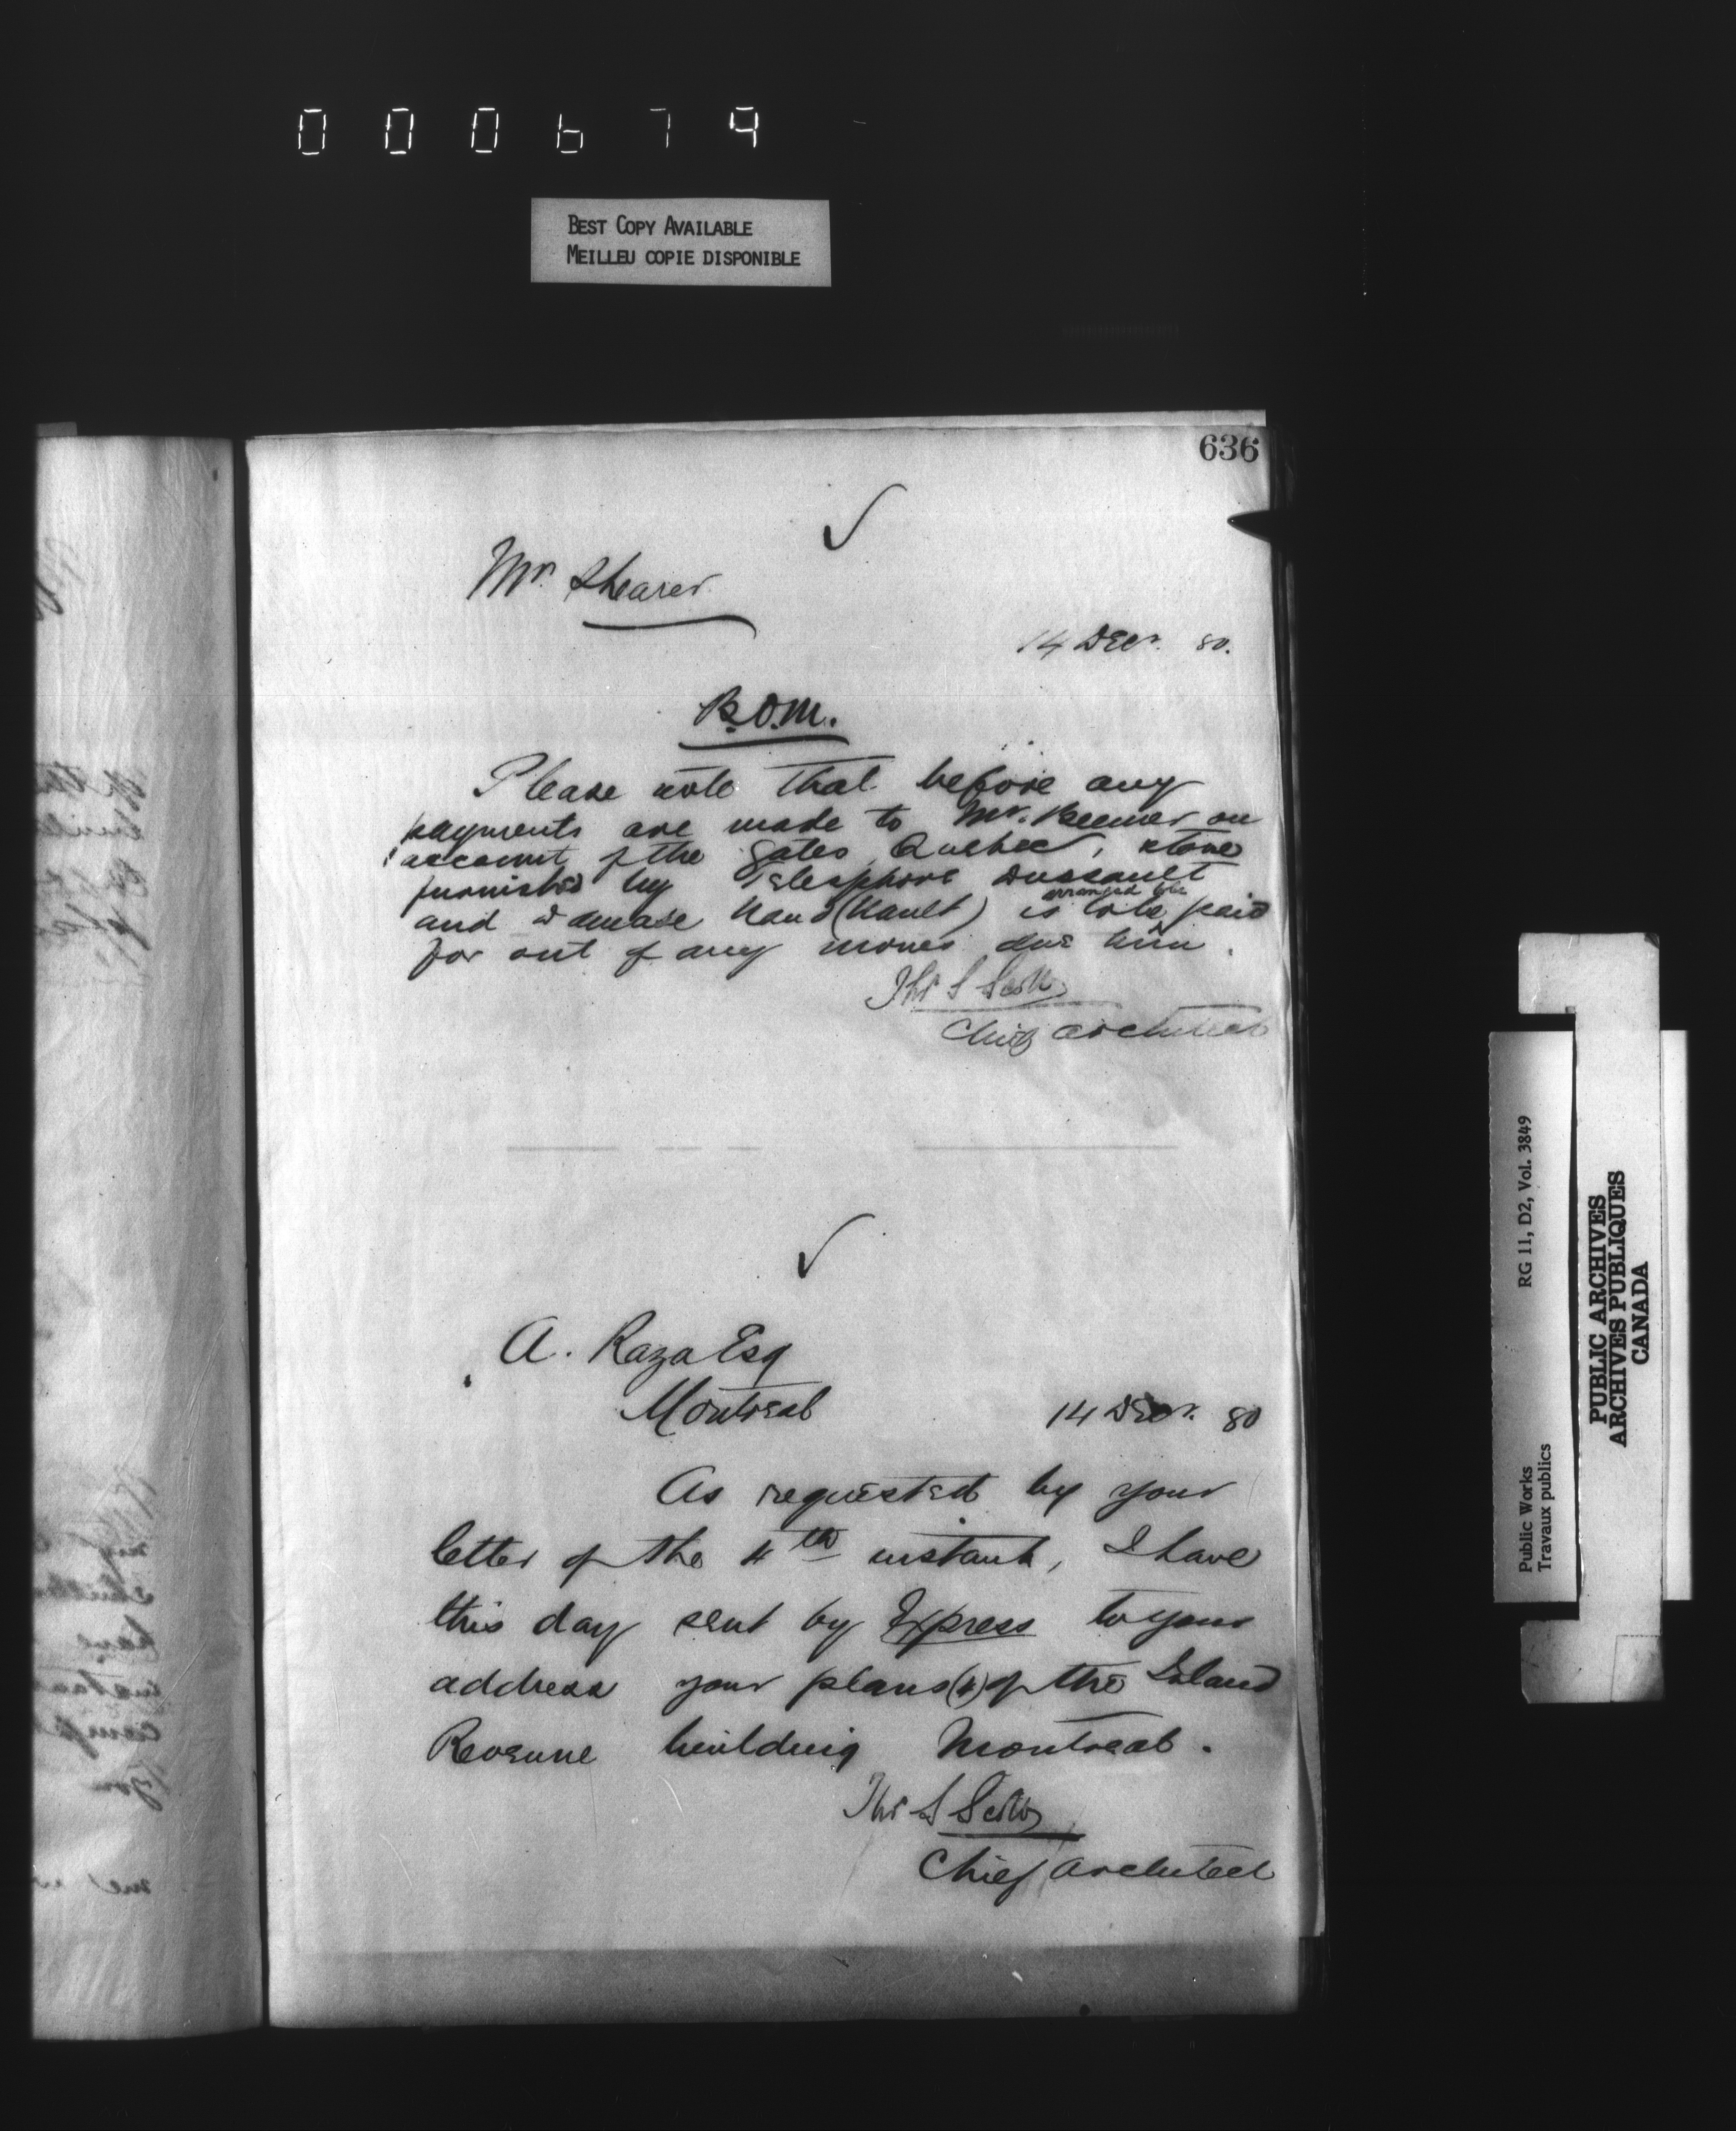 000679
BEST COPY AVAILABLE
MEILLEU COPIE DISPONIBLE
636
Mr. Shearer
14 Decr. 80.
B.O.M.
Please note that before any
payments are made to Mr. Beemer on
account of the gates, Quebec, stone
furnished by Telesphore Dussault
and Damase Naud (Nault) is to be arranged to be paid
for out of any monies due him.
Thos S Scott
Chief Architect
A. Raza Esq
Montreal
14 Decr. 80
As requested by your
letter of the 4th instant, I have
this day sent by Express to your
address your plans (4) of the Inland
Revenue building Montreal.
Thos S Scott
Chief Architect
Public Works
Travaux publics
RG 11, D2, Vol. 3849
PUBLIC ARCHIVES
ARCHIVES PUBLIQUES
CANADA